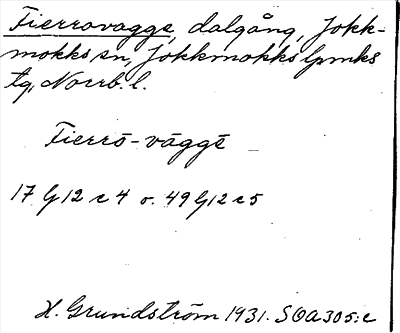 Fierrovagge, dalgång, Jokk-
mokks sn, Jokkmokks lpmks
tg, Norrb. l.
Fierrō-vāggē
17 G 12 c 4 o. 49 G 12 c 5
H. Grundström 1931. SOA 305:c